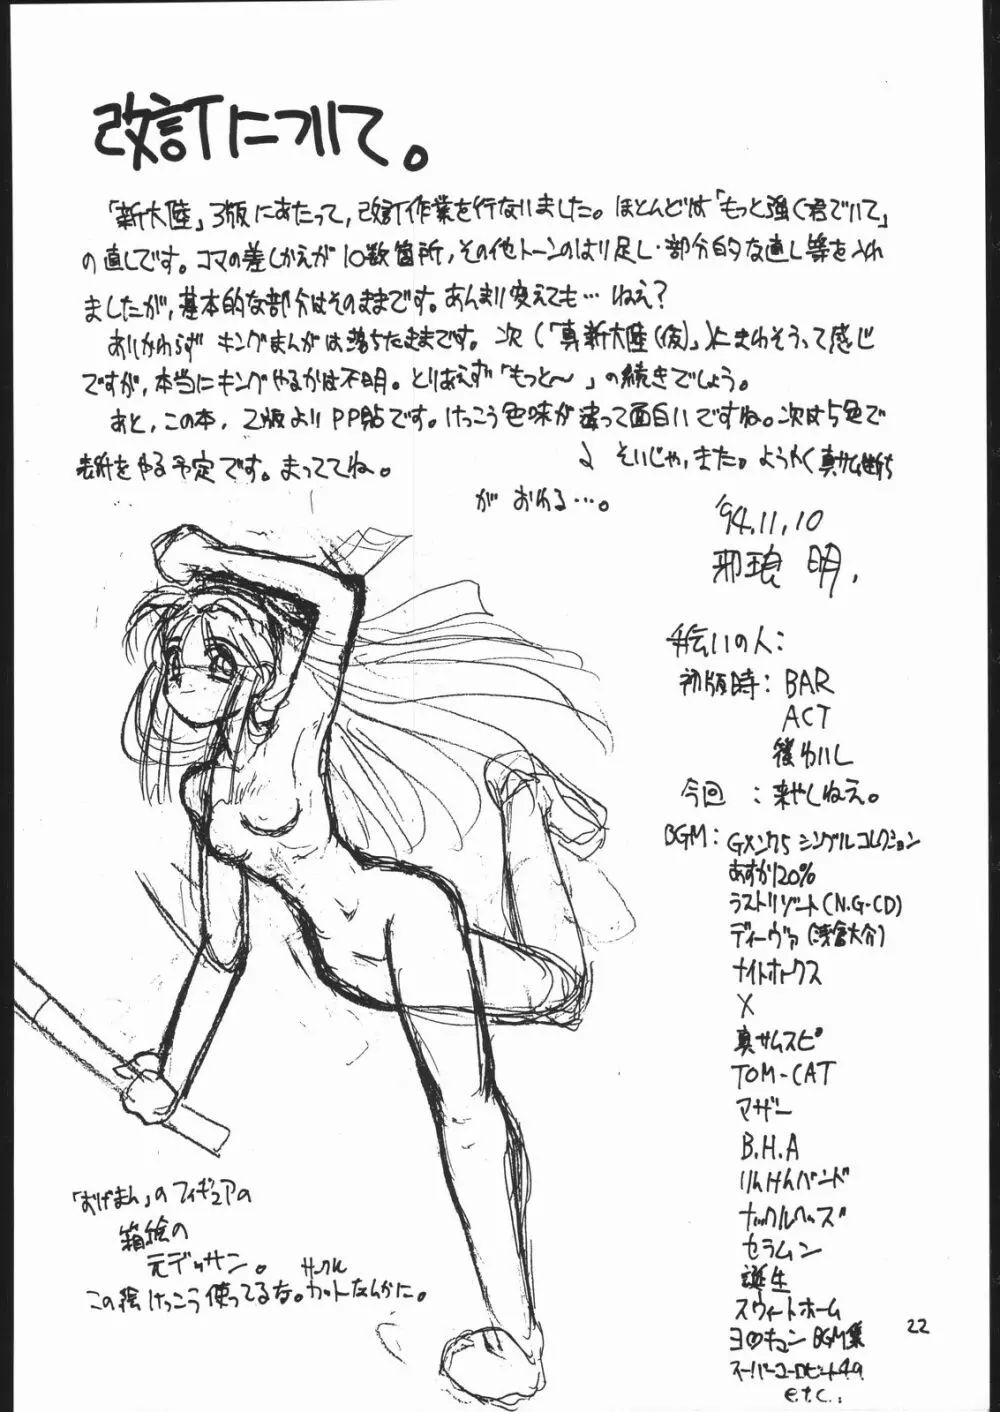 改訂について。
「新大陸」3版にあたって,改訂作業を行ないました。ほとんどは「もっと強く君でいて」
の直しです。コマの差しかえが10数箇所,その他トーンのはり足し・部分的な直し等を入れ
ましたが,基本的な部分はそのままです。あんまり変えても…ねえ?
あいかわらずキングまんがは落ちたままです。次(「真新大陸(仮)」)にまわそうって感じ
ですが,本当にキングやるかは不明。とりあえず「もっと〜」の続きでしょう。
あと,この本,2版よりPP貼です。けっこう色味が違って面白いですね。次は5色で
表紙をやる予定です。まっててね。
そいじゃ,また。ようやく真サム
がおわる…。
'94.11.10
邪琅 明.
手伝いの人:
初版時:BAR
ACT
後わいし
今回:来やしねえ。
BGM:Gメン75 シングルコレクション
あすか120%
ラストリゾート(N.G-CD)
ディーヴァ(浅倉大介)
ナイトホークス
X
真サムスピ
TOM-CAT
マザー
B.H.A
りんけんバンド
ナックルヘッズ
セラムン
誕生
スウィートホーム
BGM集
e.t.c.:
「おげまん」のフィギュアの
箱絵の
元デッサン。
サークル
この絵けっこう使ってるな。カットなんかに。
22